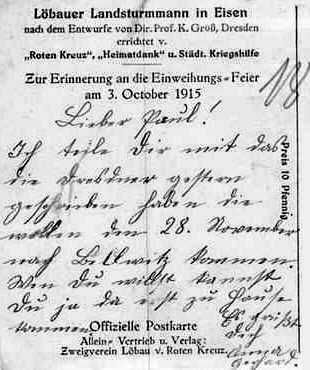 Löbauer Landsturmmann in Eisen
nach dem Entwurfe von Dir. Prof. K. Groß, Dresden
errichtet v.
„Roten Kreuz“, „Heimatdank“ u. Städt. Kriegshilfe
Zur Erinnerung an die Einweihungs-Feier
am 3. October 1915
18
Lieber Paul!
Ich teile Dir mit das
die Dresdner gestern
geschrieben haben die
wollen den 28. November
nach Bellwitz kommen.
Wen Du willst kannst
Du ja da erst zu Hause
kommen
Es grüßt
Dich
Preis 10 Pfennig
Offizielle Postkarte
Allein-Vertrieb u. Verlag:
Zweigverein Löbau v. Roten Kreuz.